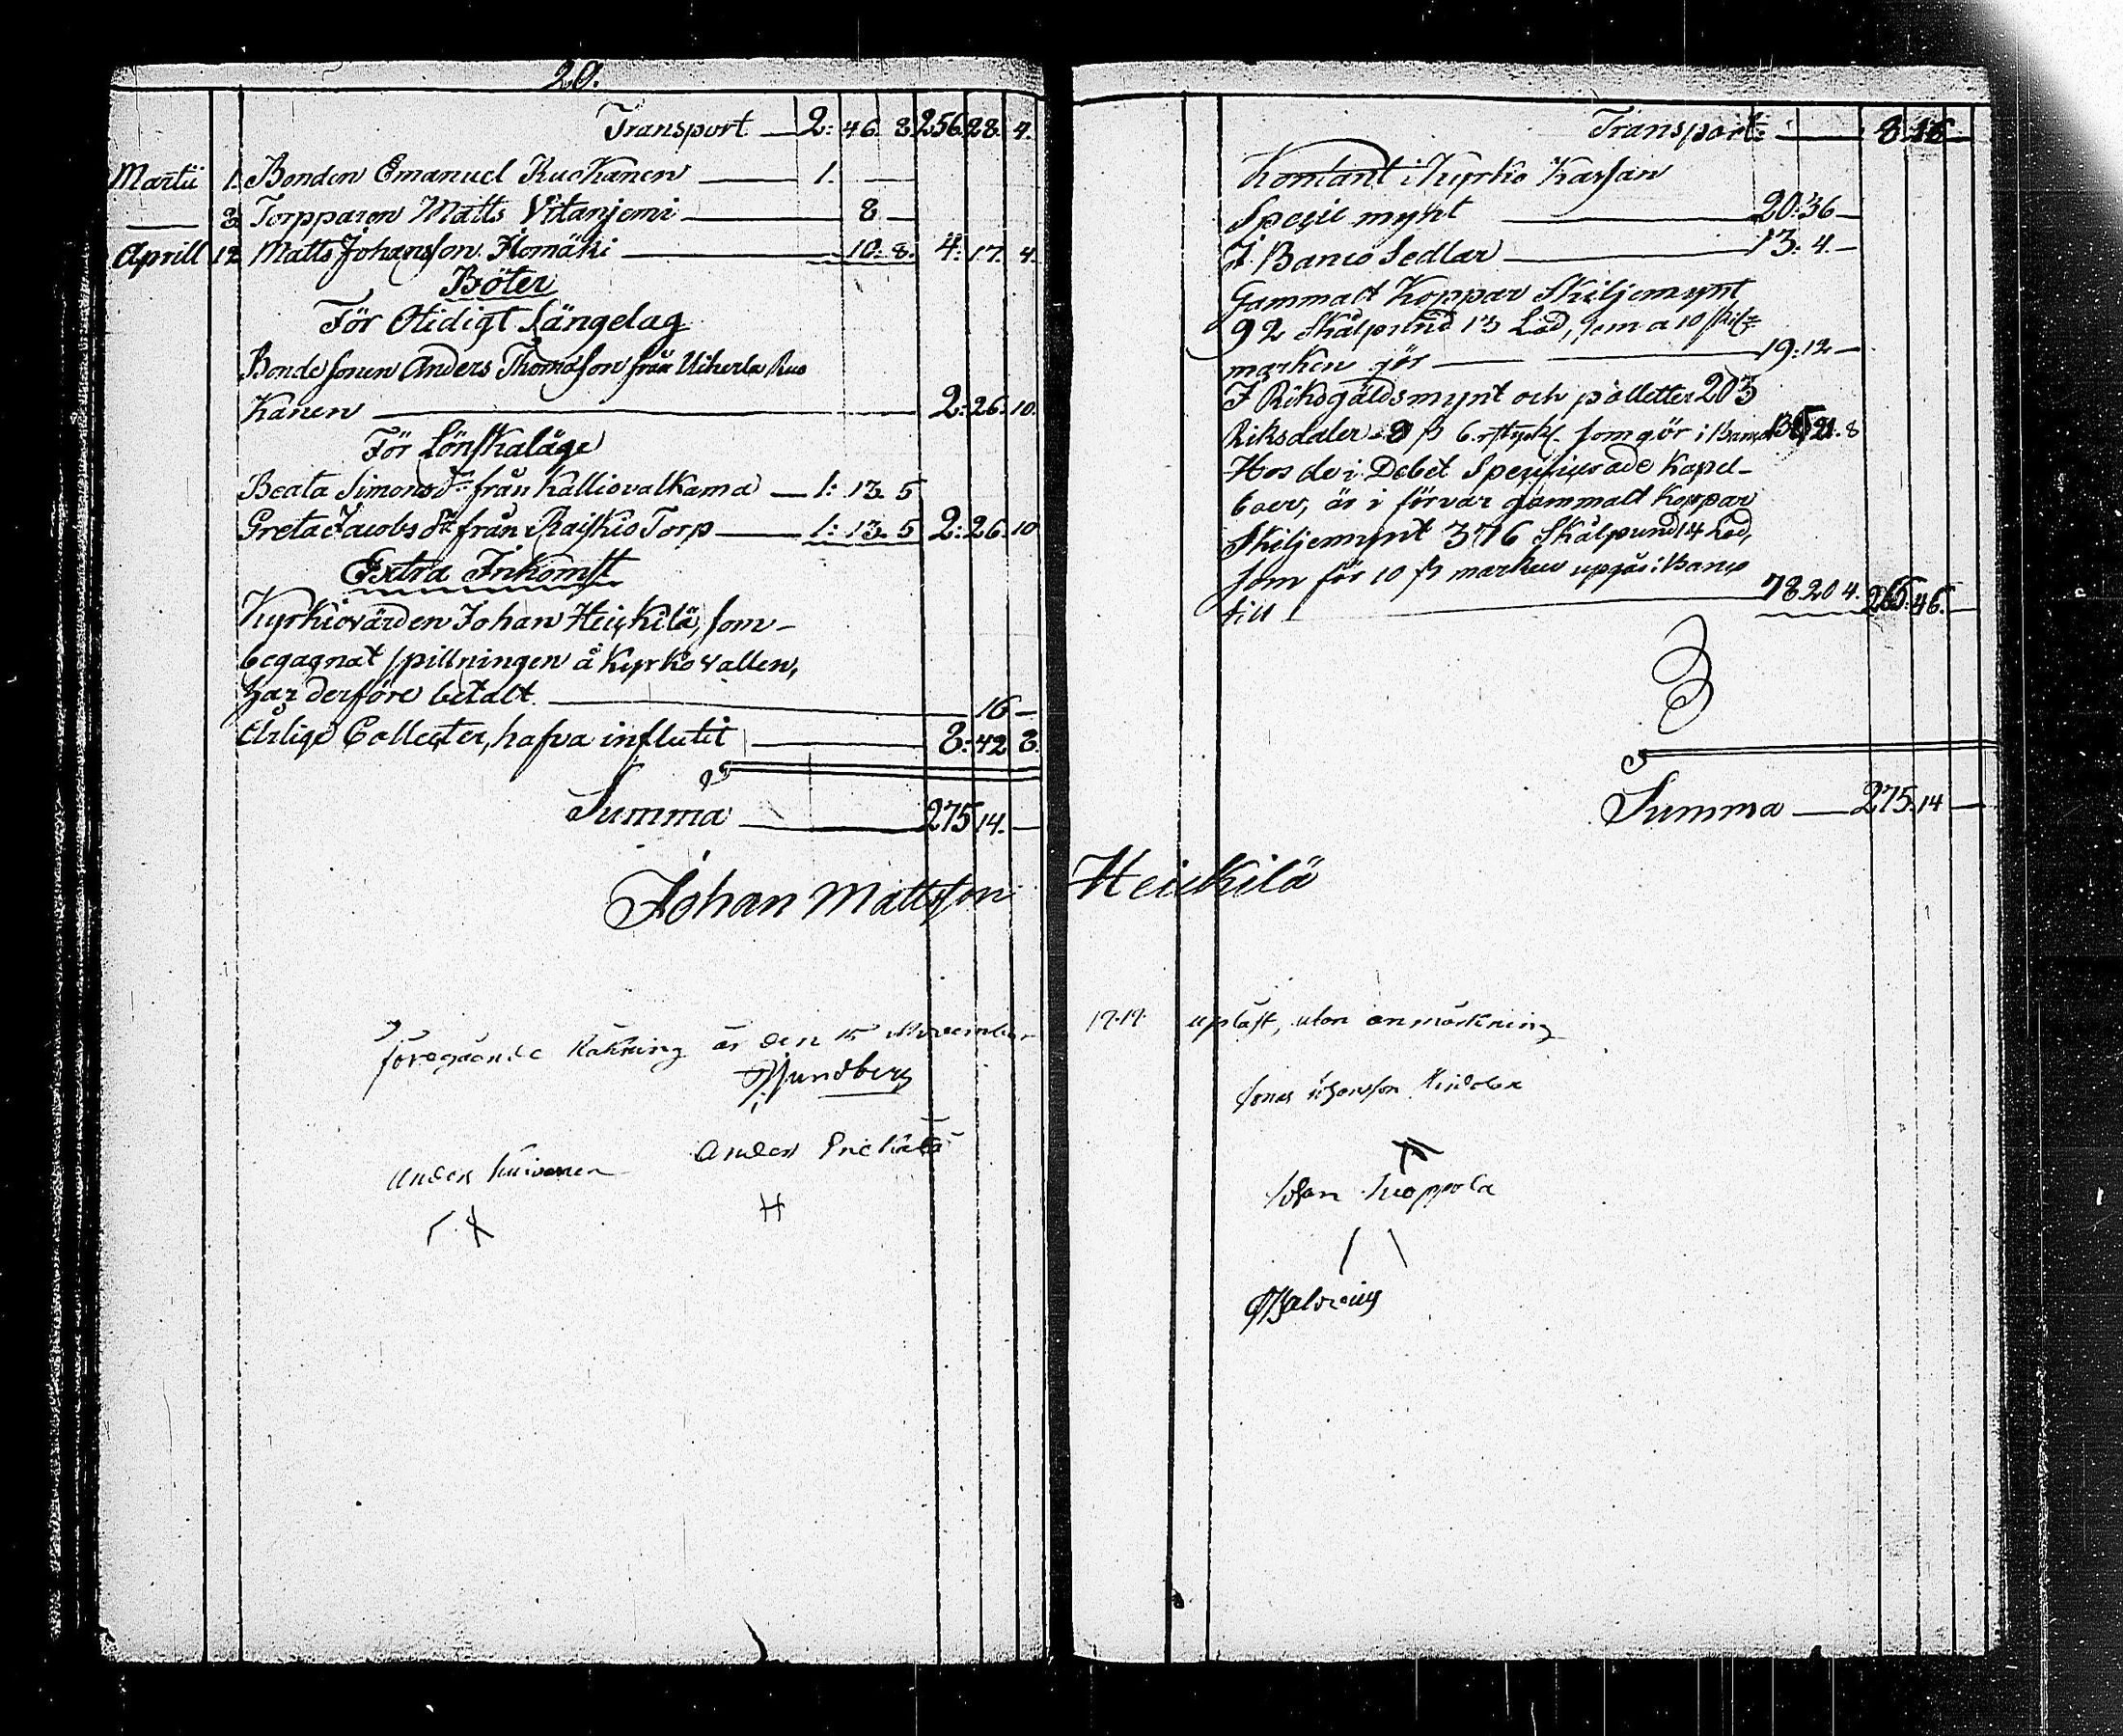 20.
Transport 2: 46. 8. 256. 28. 4.
Martii 1. Bonden Emanuel Ruokanen 1.
8 Torpparen Matts Vitanjemi 8
Aprill 12 Matts Johansson Homäki 10. 8. 4: 17. 4.
Böter
För Otidigt Sängelag
Bonde sonen Anders Thomasson från Uiherla Ruo
kanen 2: 26. 10.
För Lönskaläge
Beata Simonsdr från Kalliovalkama 1: 13. 5
Greta Jacobs dr från Raiskio Torp 1: 13. 5 2: 26. 10
Extra Inkomst
Kyrkiovärden Johan Heickilä, som
begagnat spillningen å Kyrko vallen,
har derföre betalt 16
Årlige Collecter, hafva influtit 8: 42 8.
Summa 275 14.
Johan Mattsson
föregående Räkning är den 15 November
Anders
Anders
Transport 8. 16
Kontant i Kyrko Kassan
Specie mynt 20: 36
I Banco Sedlar 13. 4.
Gammalt Koppar Skiljemynt
92 Skålpund 13 Lod, som a 10 skil
marken gör 19: 12
I Riksgäldsmynt och polletter 203
Riksdaler 8 ß 6. som gör i Banco 21. 8
Hos de i Debet Specificerade Kapel-
boer, är i förvar gammalt Koppar
Skiljemynt 376 Skålpund 14 Lod,
som för 10 ß marken upgår i Banco
till 78 20 4. 266: 46.
Summa 275. 14
Heickilä
upläst, utan anmärkning
Johan